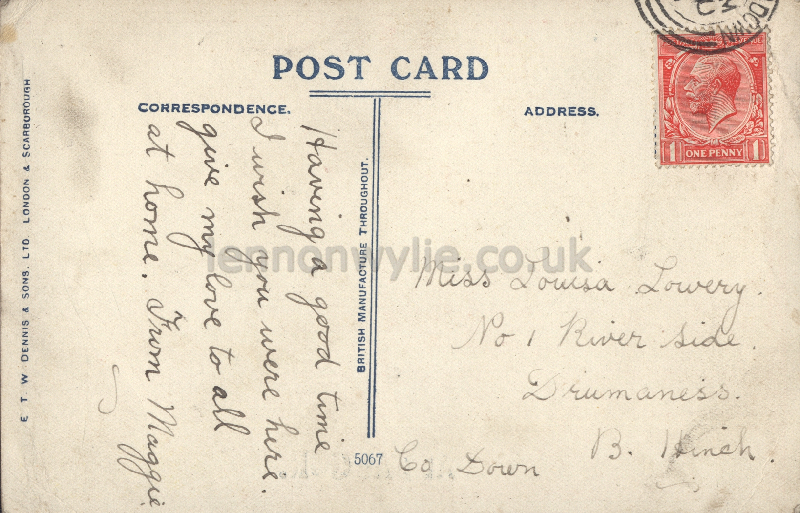 POST CARD
CORRESPONDENCE.
ADDRESS.
Having a good time
I wish you were here.
give my love to all
at home. From Maggie
BRITISH MANUFACTURE THROUGHOUT.
E T W DENNIS & SONS, LTD. LONDON & SCARBOROUGH
5067
ONE PENNY
1 1
DOWN
lennonwylie.co.uk
Miss Louisa Lowery.
No 1 River side.
Drumaness.
B. Hinch.
Co Down